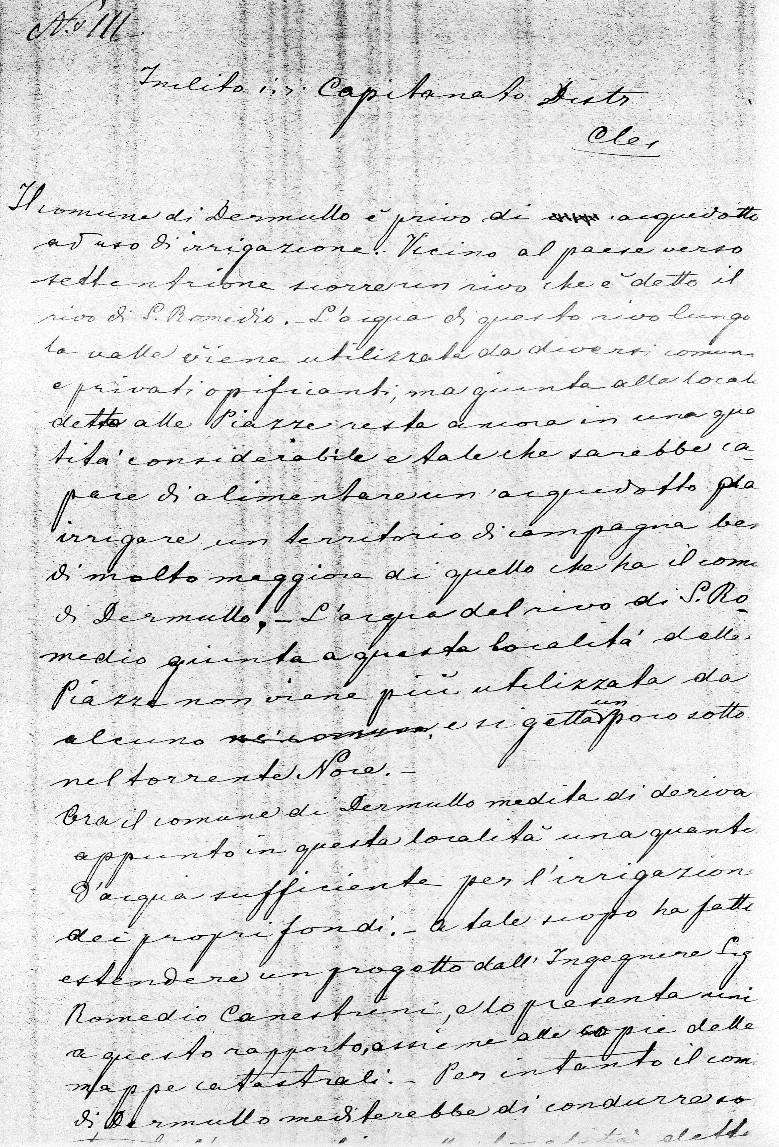 No 111
Inclito i. r. Capitanato Distr
Cles
Il comune di Dermullo è privo di acquedotto
ad uso di irrigazione. Vicino al paese verso
settentrione scorre un rivo che è detto il
rivo di S. Romedio. - L'acqua di questo rivo lungo
la valle viene utilizzata da diversi comun
e privati opificianti, ma giunta alla locali
detta alle Piazze resta ancora in una qua
tità considerabile e tale che sarebbe ca-
pace di alimentare un acquedotto p
irrigare un territorio di campagna ben
di molto maggiore di quello che ha il com
di Dermullo. - L'acqua del rivo di S. Ro-
medio giunta a questa località delle
Piazze non viene più utilizzata da
alcuno e si getta un poco sotto
nel torrente Noce. -
Ora il comune di Dermullo medita di deriva
appunto in questa località una quanti
d'acqua sufficiente per l'irrigazion
dei propri fondi. - A tale scopo ha fatto
estendere un progetto dall'Ingegnere Sig
Romedio Canestrini, e lo presenta uni
a questo rapporto, assieme alle copie delle
mappe catastrali. - Per intanto il com
di Dermullo mediterebbe di condurre so